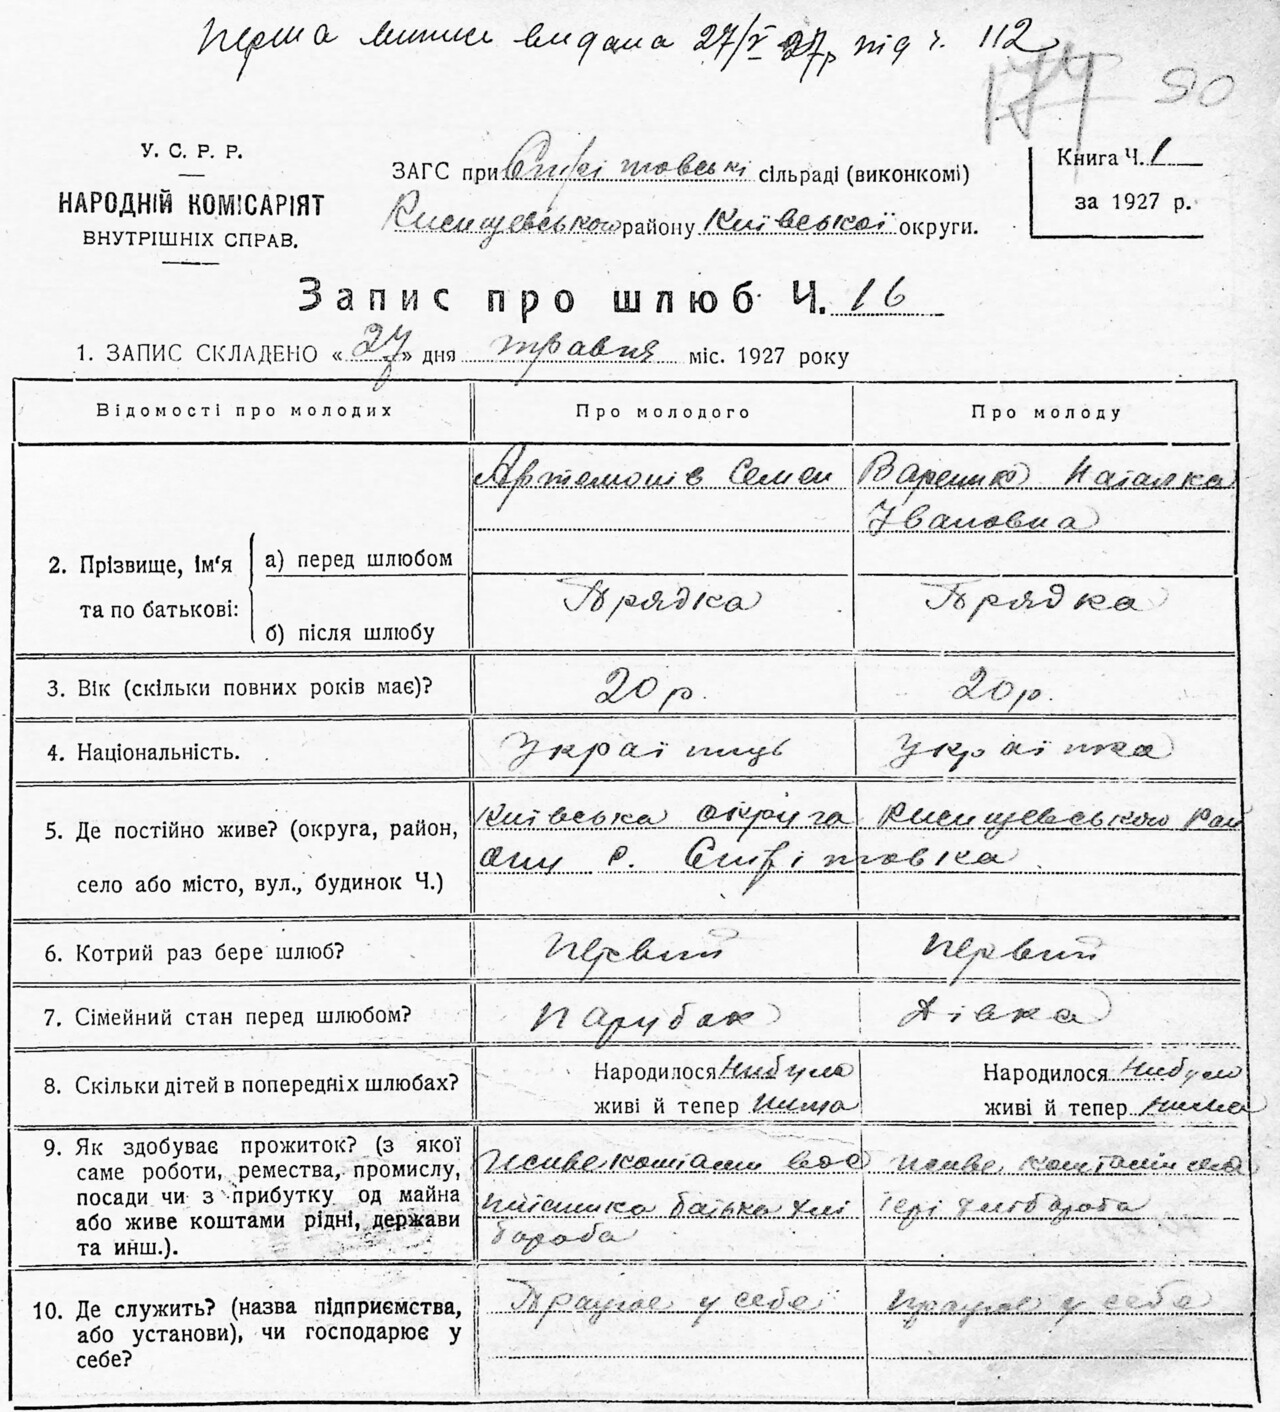 Перша виписка видана 27/V 27р під ч. 112
174 90
У. С. Р. Р.
НАРОДНІЙ КОМІСАРІЯТ
ВНУТРІШНІХ СПРАВ.
ЗАГС при Спрітовські сільраді (виконкомі)
Кисищевського району Київської округи.
Книга Ч. 1
за 1927 р.
Запис про шлюб Ч. 16
1. ЗАПИС СКЛАДЕНО « 27 » дня травня міс. 1927 року
Відомості про молодих
Про молодого
Про молоду
2. Прізвище, ім'я та по батькові:
а) перед шлюбом
Артемонів Семен
Варенико Наталка
Івановна
б) після шлюбу
Прядка
Прядка
3. Вік (скільки повних років має)?
20 р.
20 р.
4. Національність.
Українць
Українка
5. Де постійно живе? (округа, район,
село або місто, вул., будинок Ч.)
Київська округа Кисищевського рай
ону с.
6. Котрий раз бере шлюб?
Первий
Первий
7. Сімейний стан перед шлюбом?
Парубок
Дівка
8. Скільки дітей в попередніх шлюбах?
Народилося Нибуло
живі й тепер нима
Народилося Нибуло
живі й тепер нима
9. Як здобуває прожиток? (з якої
саме роботи, ремества, промислу,
посади чи з прибутку од майна
або живе коштами рідні, держави
та инш.).
живе коштами вос
питаника батька хлі
бороба
живе коштами
хлібороба
10. Де служить? (назва підприємства,
або установи), чи господарює у
себе?
Працює у себе
працює у себе